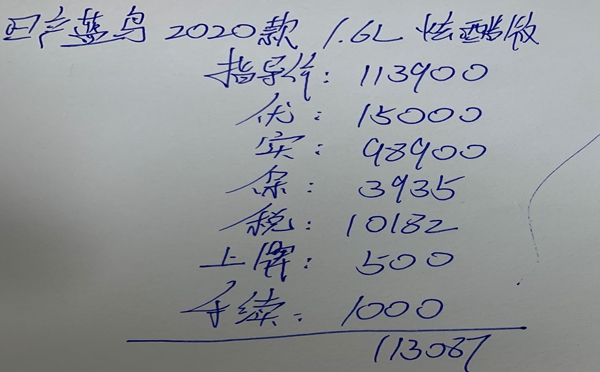 日产蓝鸟 2020款 1.6L 炫酷版
指导价: 113900
优: 15000
实: 98900
保: 3935
税: 10182
上牌: 500
手续: 1000
113087